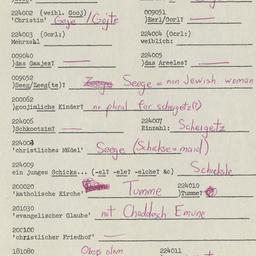 224002 (weibl. Gooj)                009051
'Christin' Goje / Gojte            )Esrl/Oorl?:
224003 (Oorl:)                224004 (Oorl:)
Mehrzahl                weiblich:
009040                224005
)das Gaajes?                )das Areeles?
009052
)Seeg/Seeg(te)? Seege = non Jewish woman
200062
)goojimliche Kinder? no plural for schejgetz(?)
224006                224007
)Schkootzim?                Einzahl: Schejgetz
'christliches Mädel' Seege (Schickse = maid)
224009
ein junges Schicks... (-el? -ele? -elche? &c) Schicksle
200020                224010
'katholische Kirche' Tumme )Tumme?
201030
'evangelischer Glaube' mit Chaddesch Emune
200100
'christlicher Friedhof'
181080                224011